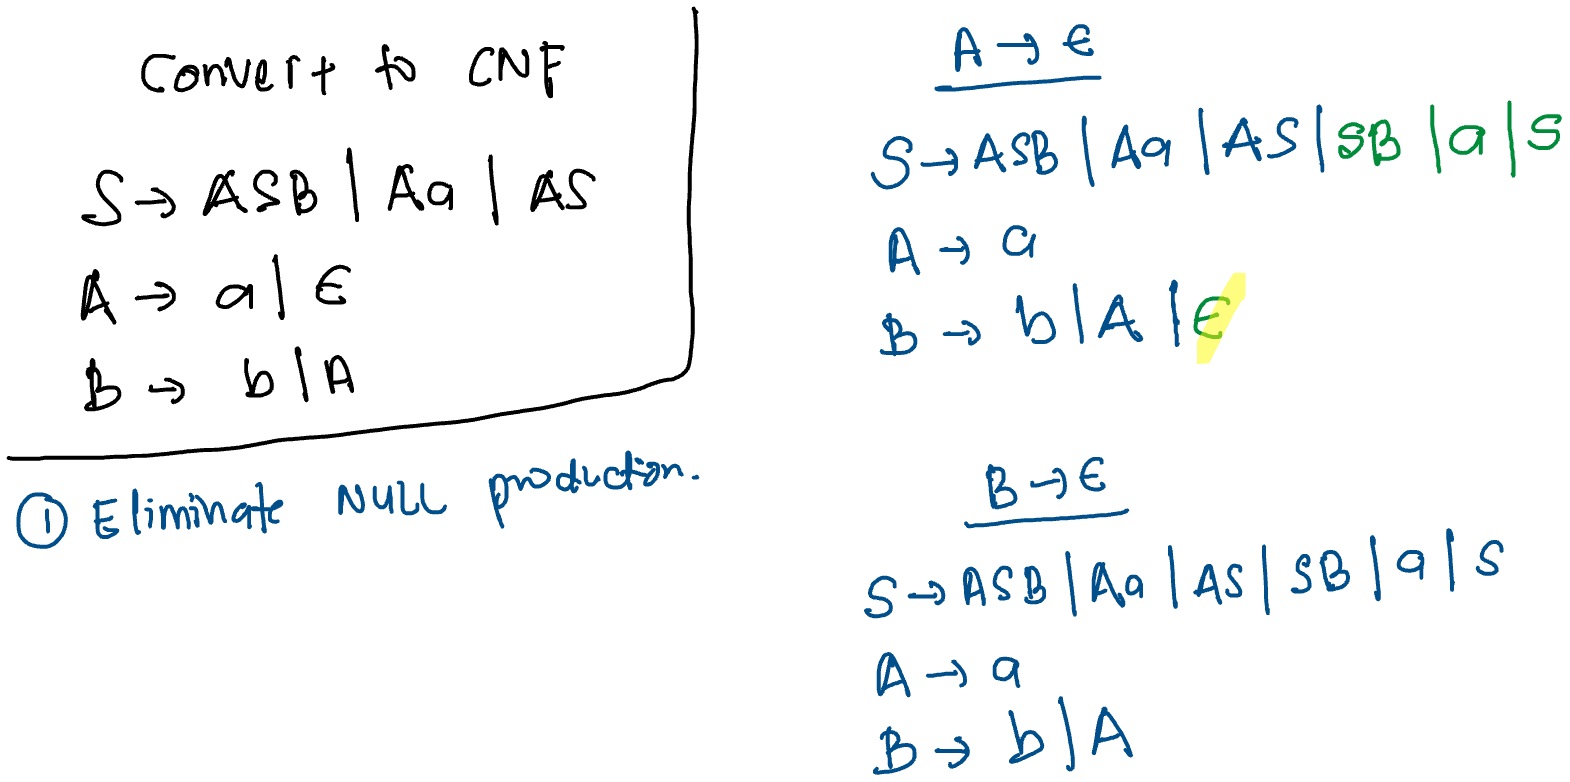 Convert to CNF
S → ASB | Aa | AS
A → a | ϵ
B → b | A
① Eliminate NULL production.
A → ϵ
S → ASB | Aa | AS | SB | a | S
A → a
B → b | A | ϵ
B → ϵ
S → ASB | Aa | AS | SB | a | S
A → a
B → b | A